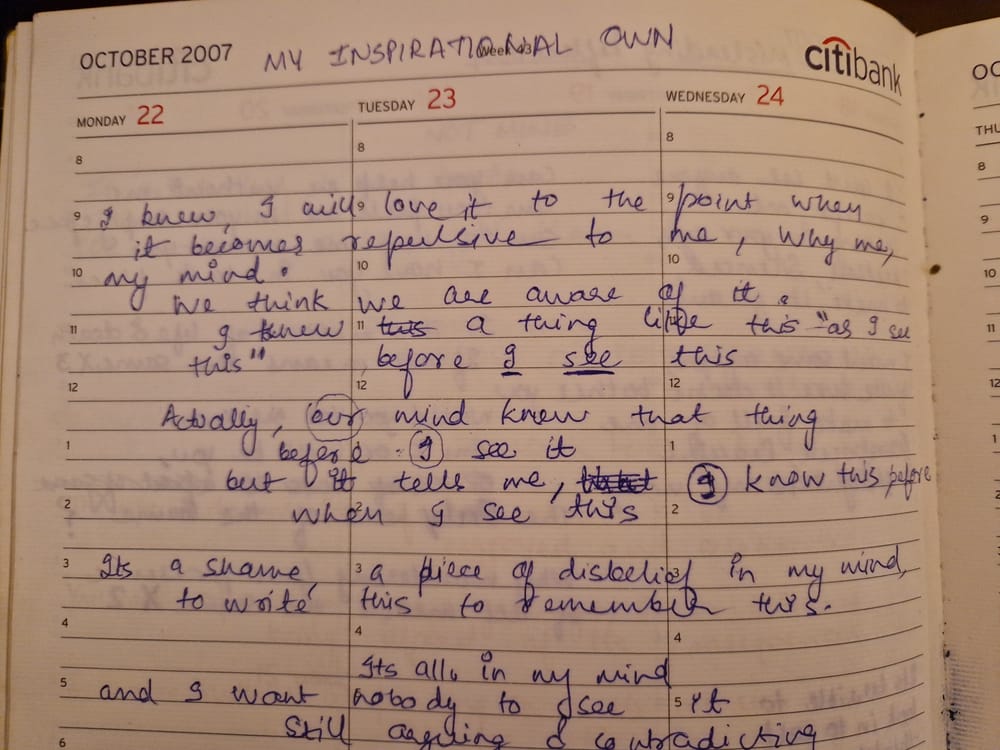 OCTOBER 2007 MY INSPIRATIONAL OWN Week 43 citibank
MONDAY 22 TUESDAY 23 WEDNESDAY 24
8 8 8
9 I knew, I will 9 love it to the 9 point when
it becomes repulsive to me, why me,
10 my mind. 10 10
we think we are aware of it.
11 I knew 11 this a thing like 11 this "as I see
this" before I see this
12 12 12
Actually, our mind knew that thing
1 before 1 I see it 1
but it tells me, I know this before
2 when 2 I see this 2
3 Its a shame, 3 a piece of disbelief 3 in my mind,
to write this to remember this.
4 4 4
Its all in my mind
5 and I want nobody to see 5 it
6 Still arguing & contradicting
OC
THU
8
9
10
11
12
1
2
3
4
5